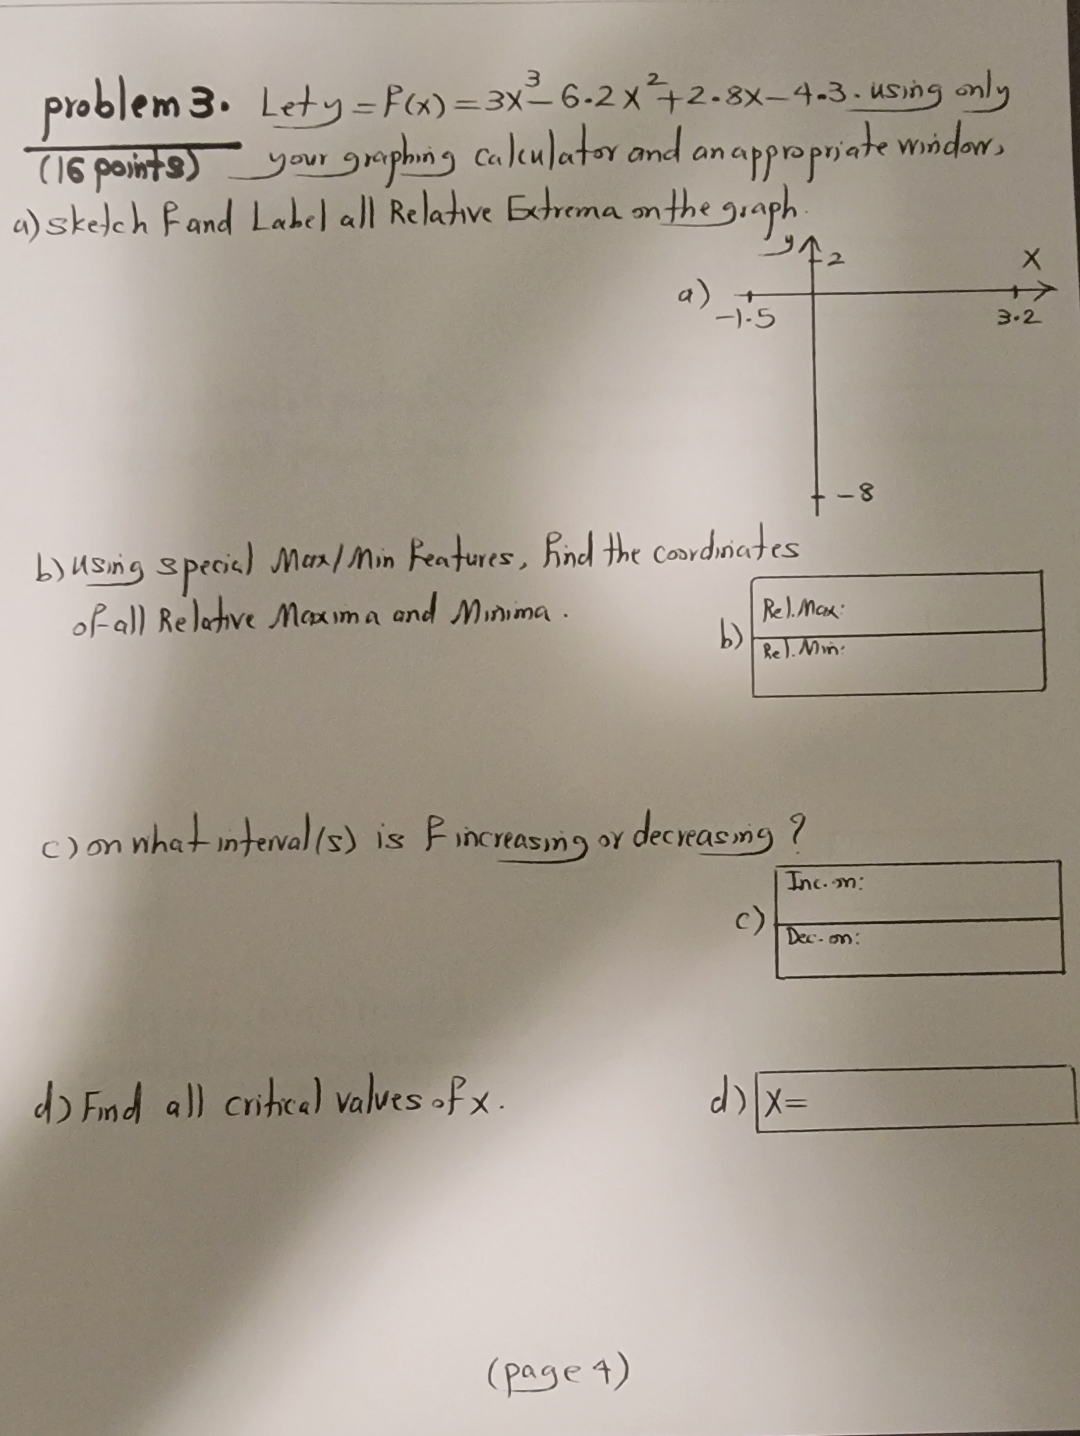 problem 3. Let y = f(x) = 3x³ - 6.2x² + 2.8x - 4.3. using only
(16 points) your graphing calculator and an appropriate window,
a) sketch f and Label all Relative Extrema on the graph.
y 2 x
a) -1.5 3.2
-8
b) using special Max/Min features, find the coordinates
of all Relative Maxima and Minima.
b) Rel. Max:
Rel. Min:
c) on what interval(s) is f increasing or decreasing?
c) Inc. on:
Dec. on:
d) Find all critical values of x.
d) x=
(page 4)